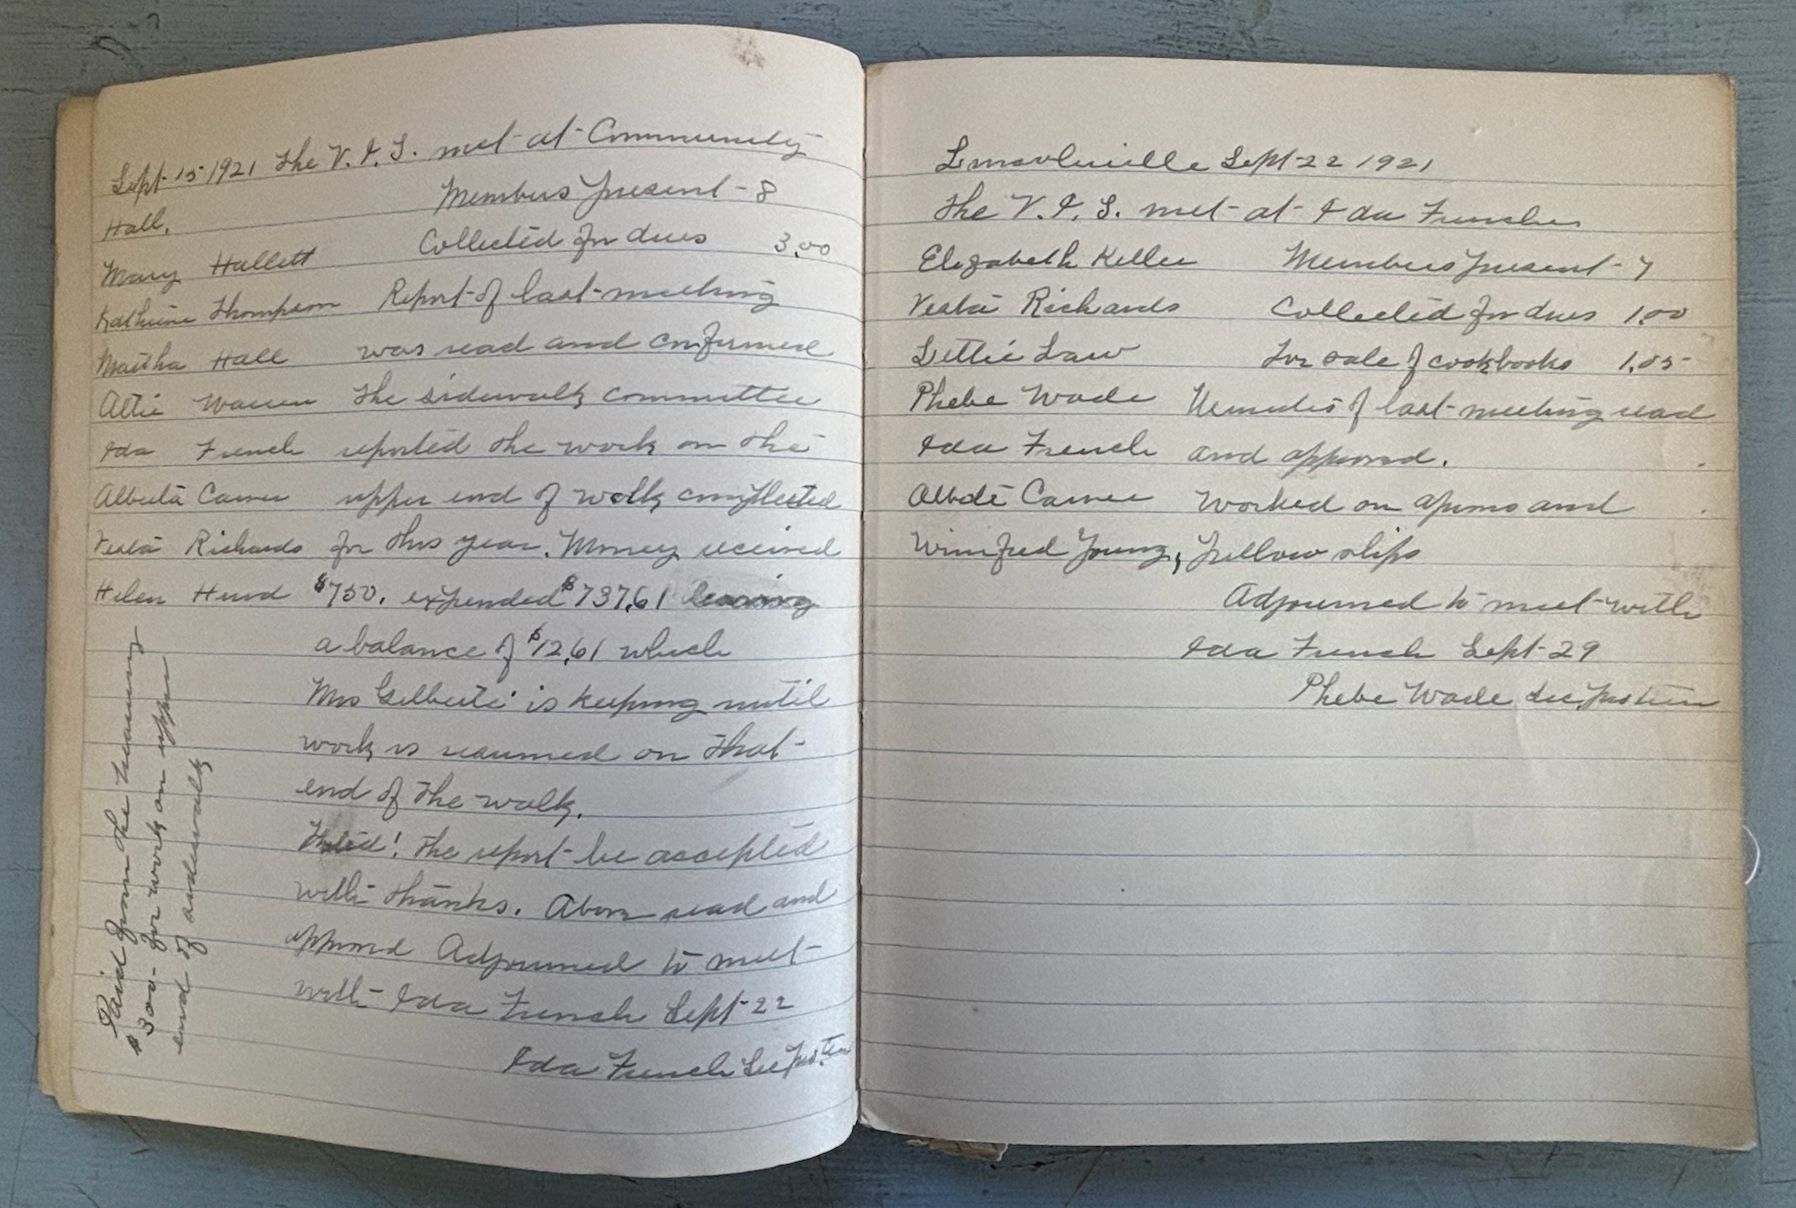 Sept-15-1921 The V.I.S. met-at-Community
Hall. Members present-8
Mary Hallett Collected for dues 3.00
Kathrine Thompson Report-of last-meeting
Martha Hall was read and confirmed
Altie Warren The sidewalk committee
Ida French reported the work on the
Alberta Carver upper end of walk completed
Vesta Richards for this year. Money received
Helen Hurd $750. expended $737.61 leaving
a balance of $12.61 which
Mrs Gilberte is keeping until
work is resumed on that-
end of the walk.
Voted! The report-be accepted
with thanks. Above read and
approved Adjourned to meet-
with Ida French Sept-22
Ida French Sec pro. tem
Paid from the treasury
$300- for work on upper
end of sidewalk
Lincolnville Sept-22 1921
The V.I.S. met-at-Ida Frenches
Elizabeth Keller Members present-7
Vesta Richards Collected for dues 1.00
Lettie Law For sale of cookbooks 1.05
Phebe Wade Minutes of last-meeting read
Ida French and approved.
Carver Worked on aprons and
Winifred Young, pillow slips
Adjourned to meet-with
Ida French Sept-29
Phebe Wade Sec. pro tem